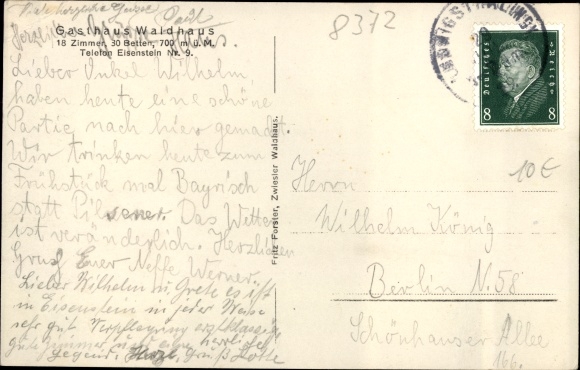 Viele herzliche Grüsse
Paul
8372
Gasthaus Waldhaus
18 Zimmer, 30 Betten, 700 m ü. M.
Telefon Eisenstein Nr. 9.
Lieber Onkel Wilhelm,
haben heute eine schöne
Partie nach hier gemacht.
Wir trinken heute zum
Frühstück mal Bayrisch
statt Pilsener. Das Wetter
ist veränderlich. Herzlichen
Gruß Euer Neffe Werner.
Lieber Wilhelm u. Grete es ist
in Eisenstein in jeder Weise
sehr gut. Verpflegung erstklassig
gute Zimmer und eine herrliche
Gegend. Herzl. Gruß Lotte
Fritz Forster, Zwiesler Waldhaus.
LUDWIGSTHAL
Deutsches Reich
8 8
10 €
Herrn
Wilhelm König
Berlin N. 58
Schönhauser Allee
166.